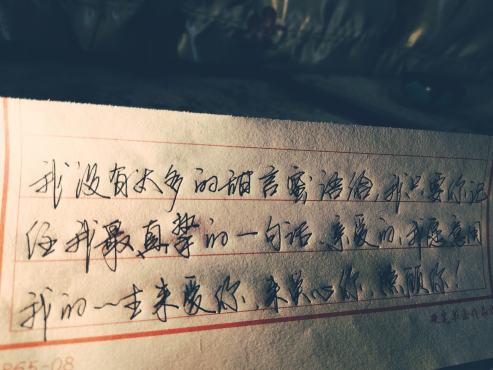 我没有太多的甜言蜜语给,我只要你记
住我最真挚的一句话、亲爱的,我愿意用
我的一生来爱你、来关心你,照顾你!
865-08